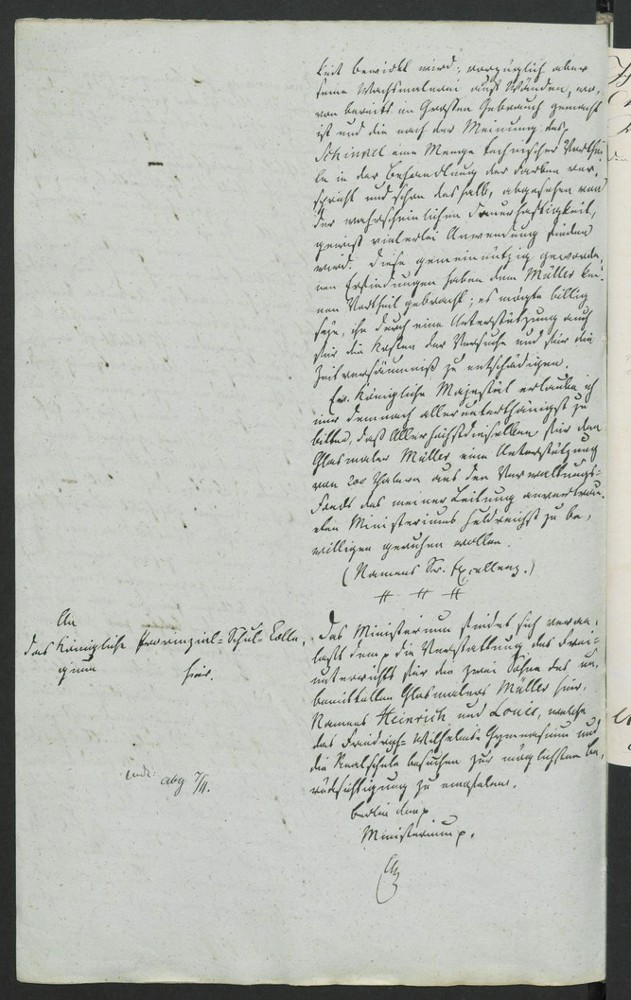 keit bewirkt wird; vorzüglich aber
seine Wachsmalerei auf Wänden, wo-
von bereits im Großen Gebrauch gemacht
ist und die nach der Meinung des
Schinkel eine Menge technischer Vorthei-
le in der Behandlung der Farben ver-
spricht und schon deshalb, abgesehen von
der wahrscheinlichen Dauerhaftigkeit,
gewiß vielerlei Anwendung finden
wird. Diese gemeinnützig geworde-
nen Erfindungen haben dem Müller kei-
nen Vortheil gebracht; es möchte billig
sein, ihn durch eine Unterstützung auch
für die Kosten der Versuche und für die
Zeitversäumniß zu entschädigen.
Ew. Königliche Majestät erlaube ich
mir demnach allerunterthänigst zu
bitten, daß Allerhöchstdieselben für den
Glasmaler Müller eine Unterstützung
von 200 Thalern aus den Verwaltungs-
Fonds des meiner Leitung anvertrau-
ten Ministeriums huldreichst zu be-
willigen geruhen wollen.
(Namens Sr. Excellenz.)
An
das Königliche Provinzial-Schul-Colle-
gium
hier.
Das Ministerium findet sich veran-
laßt dem p die Verstattung des Frei-
unterrichts für die zwei Söhne des un-
bemittelten Glasmalers Müller hier,
Namens Heinrich und Louis, welche
das Friedrich-Wilhelms-Gymnasium und
die Realschule besuchen zur möglichsten Be-
rücksichtigung zu empfehlen.
Berlin den p
Ministerium p.
abg 7/11.